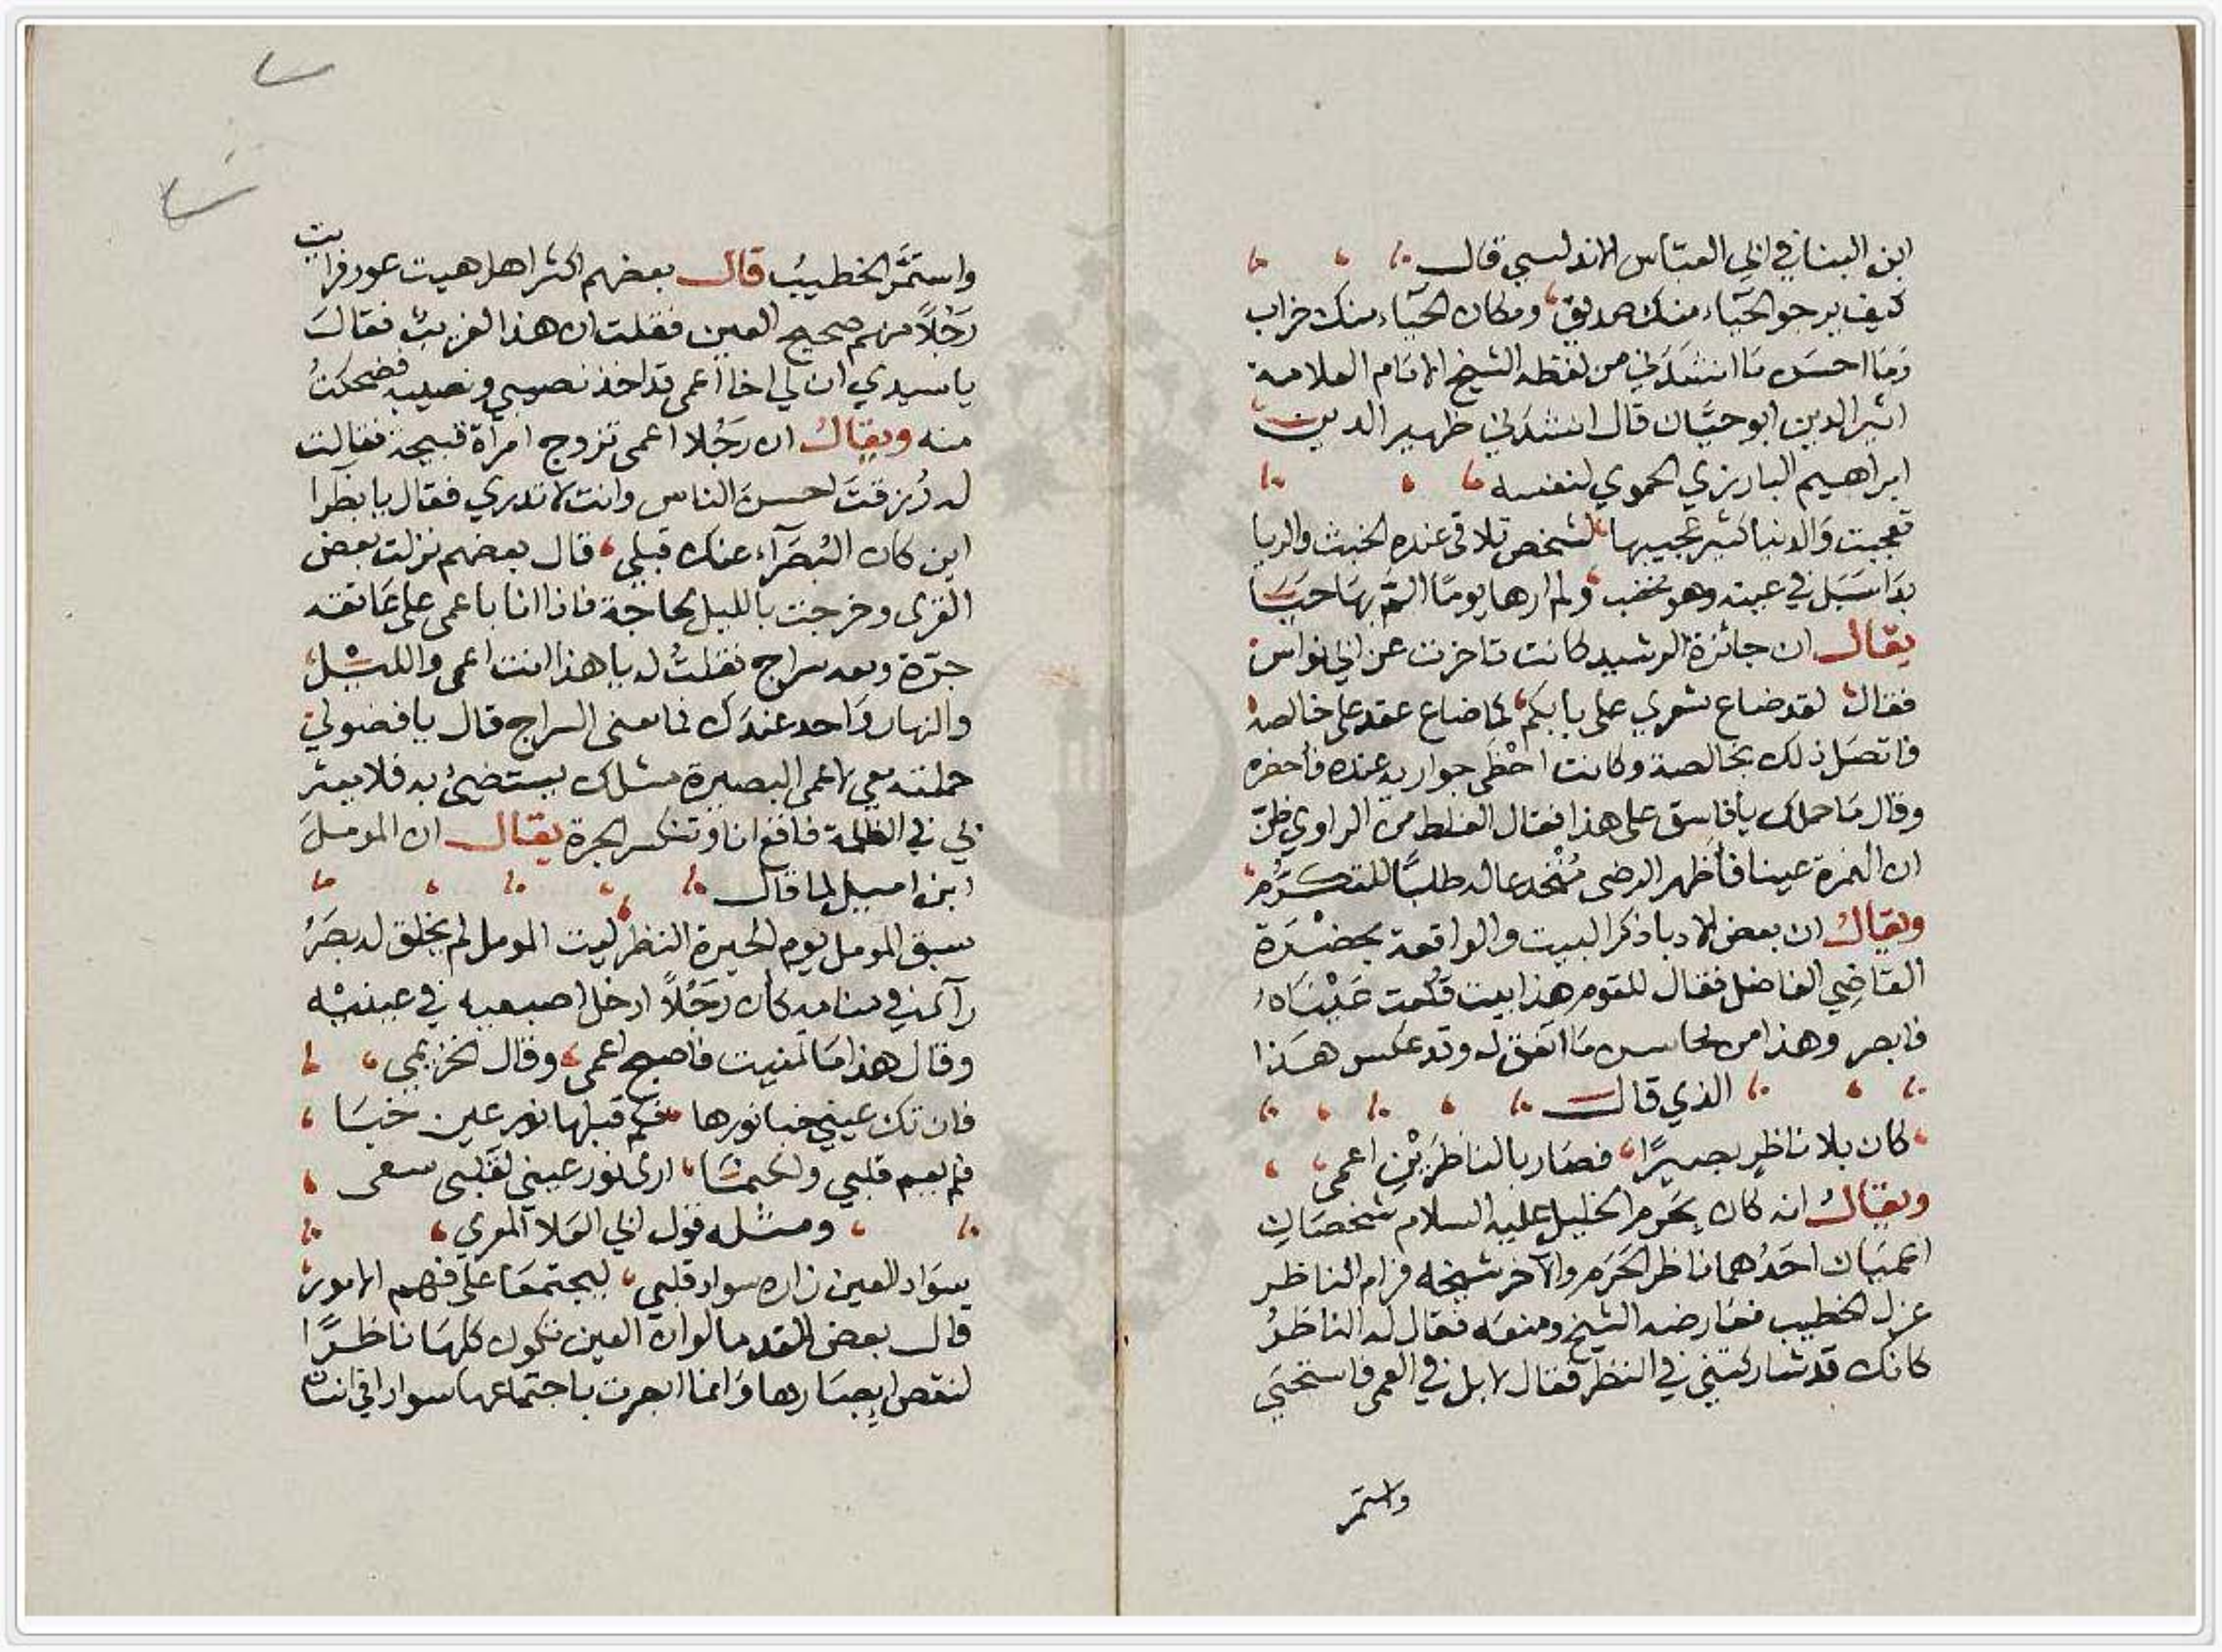 ابن البنا في ابي العباس الاندلسي قال
كيف يرجو الحياء منك صديق ومكان الحياء منك خراب
وَمَا احسن مَا انشدَني من لفظه الشيخ الامَام العلامة
اثير الدين ابو حيَّان قال انشدَني ظهير الدين
ابراهيم البارزي الحموي لنفسه
تعجبت وَالدنيا كثير عجيبها لشخص تلاقى عنده الخبث والريا
بدَا سَبَل في عينه وهو مخضب ولم ارها يومًا الم بهَا حيَا
يقال ان جائزة الرشيد كانت تاخرت عن ابي نواس
فقال لقد ضاع شعري على بابكم كما ضاع عقد على خالصه
فاتصَل ذلك بخالصة وكانت احْظَى جواريه عنده فأحضره
وقال مَا حملك يا فاسق على هذا فقال الغلط من الراوي ظنّ
ان الهمزة عينا فأظهر الرضى مُنْخدعا له طلبًا للتكرُّم
ويقالُ ان بعض الادبا ذكر البيت والواقعة بحضْرَة
القاضِي الفاضل فقال للقوم هذا بيت قُلعت عَيْنَاهُ
فابصر وهذا من محاسن مَا اتفق له وقد عكس هَذا
الذي قال
كان بلا ناظرٍ بصيرًا فصَار بالناظرَيْنِ اعمى
ويقالُ انه كان بحَرم الخليل عليه السلام شخصَانِ
اعميَان احَدُهما ناظر الحَرَم والآخر شيخه فرام الناظر
عزل الخطيب فعَارضه الشيخ ومنعَه فقال له الناظرُ
كانك قد شاركتني في النظر فقال لا بل في العمى فاستحيَي
واستمر
واستمَّر الخطيبُ قال بعضهم اكثر اهل هيت عور فرايت
رَجُلاً منهم صحيح العين فقلت ان هذا لغريبٌ فقالَ
يا سيدي ان لي اخا اعمى قد اخذ نصيبي ونصيبه فضحكتُ
منه ويقالُ ان رَجُلا اعمى تزوج امرأة قبيحة فقالت
له رُزقتَ احسنَ الناس وانت لا تدري فقال يا بظرا
اين كان البُصَرَآء عنك قبلي قال بعضهم نزلت بعض
القرى وخرجت بالليل لحاجة فاذا انا باعمى على عَاتقه
جرّة ومعه سراج فقلتُ له يا هذا انت اعمى والليْل
والنهار وَاحد عندَك فما معنى السراج قال يا فضولي
حملته معي لاعمى البصيرة مثلك يستضيُ به فلا يعثر
بي في الظلمة فاقع انا وتنكسر الجرة يقال ان المومل
ابن اميل لما قال
سبق المومل يوم الحيرة النظر ليت المومل لم يخلق له بصَرُ
رآى في منامه كأن رجَلاً ادخل اصبعيه في عينيْه
وقال هذا مَا تمنيت فاصبح اعمى وقال الخزيمي
فان تك عيني خبا نورها فكم قبلها نور عين خبَا
فلم يعم قلبي ولكنما ارى نور عيني لقلبي سعى
ومثله قول ابي العَلا المعري
سوَاد العين زاره سواد قلبي ليجتمعَا على فهم الامور
قال بعض القدما لو ان العين تكون كلهَا ناظرًا
لنقص ابصَارها وَانما ابصرت باجتماعها سوادا في انسان